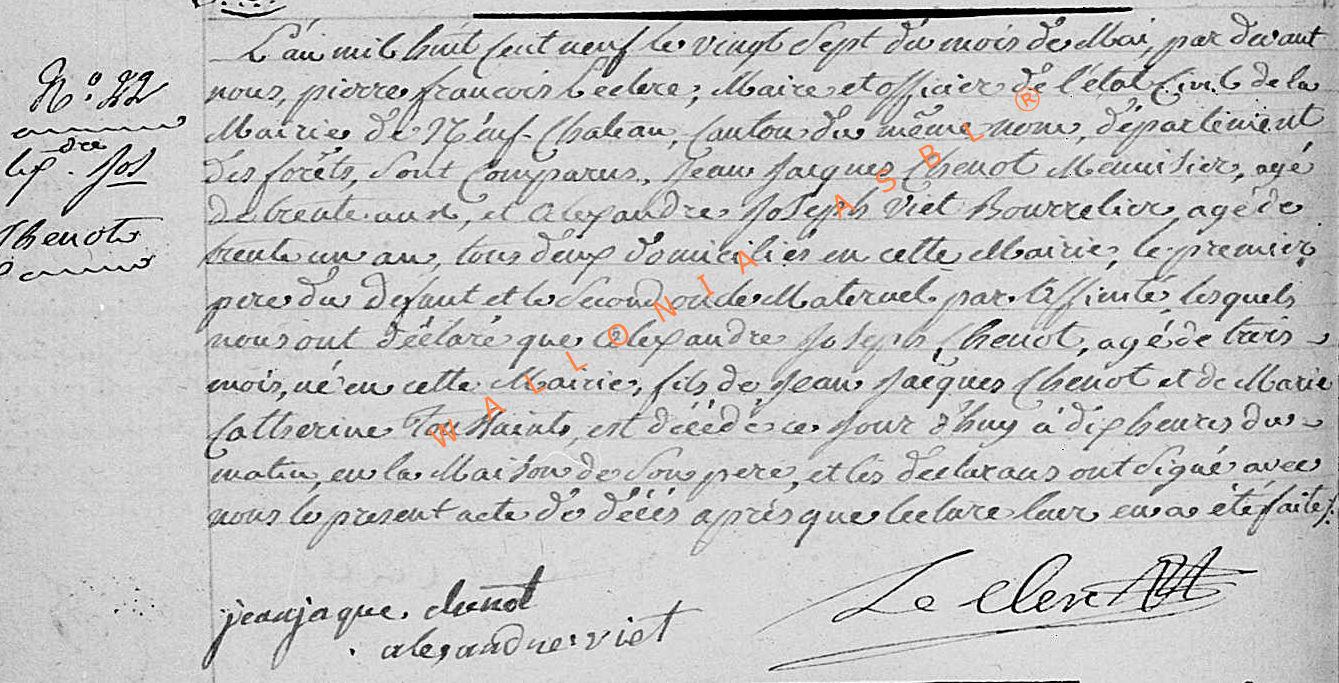 L'an mil huit cent neuf le vingt sept du mois de Mai, par devant
N.° 22
nous, pierre francois Leclerc, Maire et officier de l'état Civil de la
Mairie de Neuf-Chateau, Canton du même nom, département
alex.dre Jos
des forêts, sont Comparus, Jean Jacques Chenot Menuisier, agé
de trente ans, et Alexandre Joseph Viet Bourrelier, agé de
Chenot
trente un an, tous deux domiciliés en cette Mairie, le premier
pere du defunt et le Second oncle Maternel par Affinité, lesquels
nous ont déclaré que Alexandre Joseph Chenot, agé de trois
mois, né en cette Mairie, fils de Jean Jacques Chenot et de Marie
Catherine Toussaint, est décédé ce jour d'huy à dix heures du
matin, en la Maison de Son pere, et les declarans ont Signé avec
nous le present acte de décés aprés que lecture leur en a été faite.
jean jaque chenot
Le Clerc
alexandre viet
WALLONIA ASBL ®